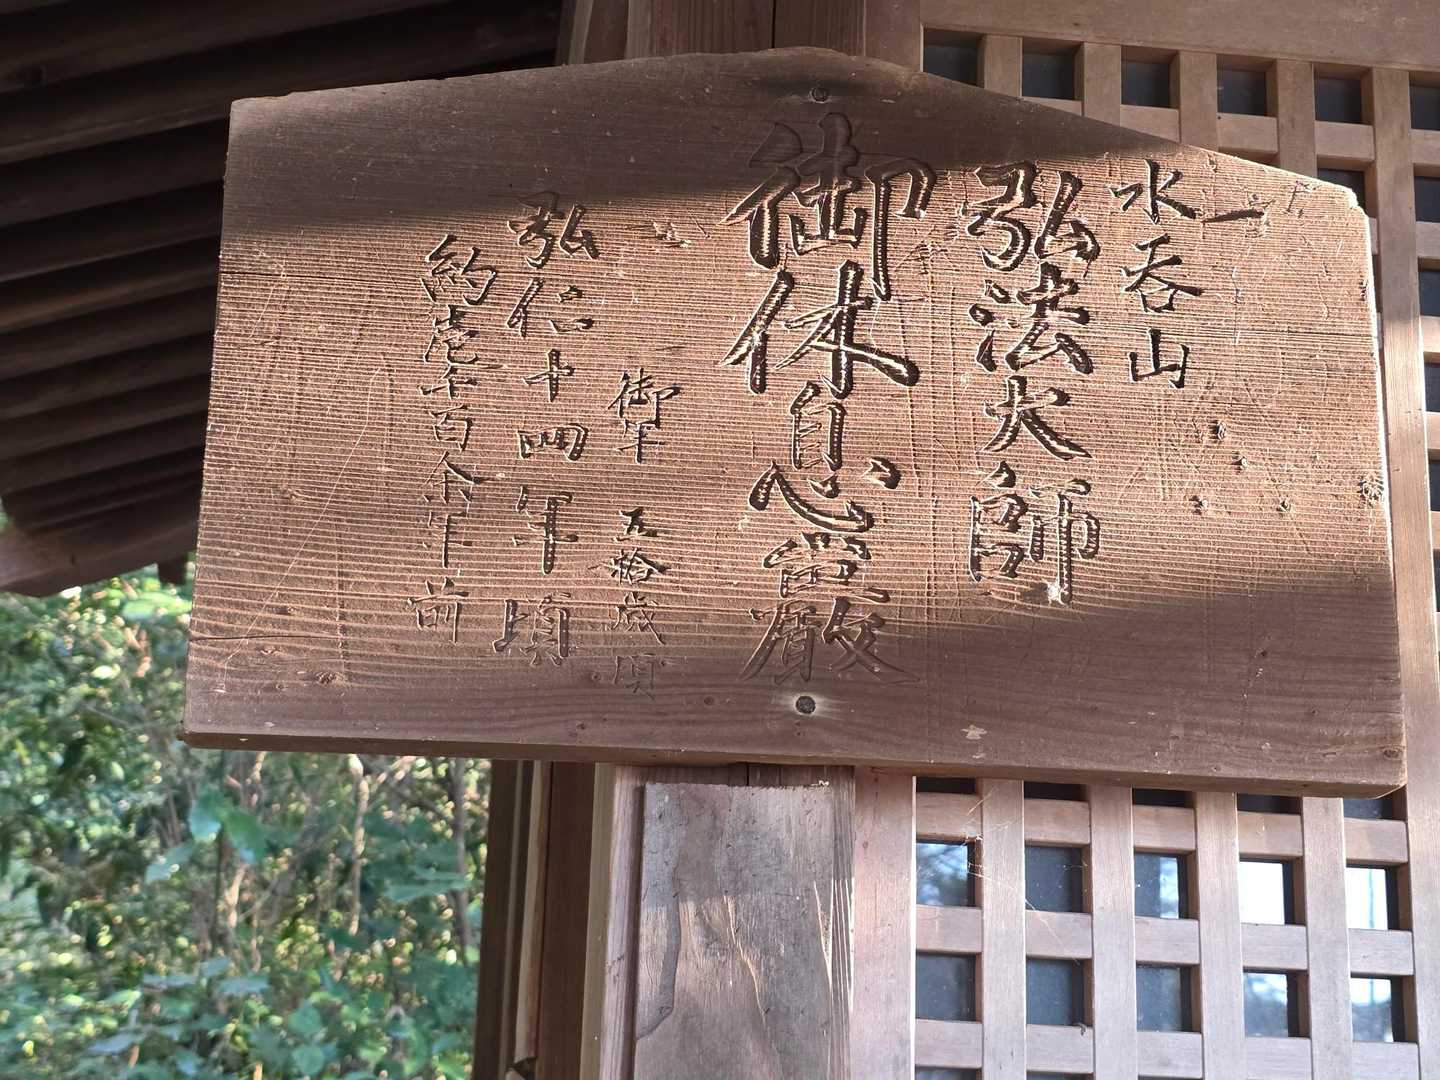 水呑山
弘法大師
御休息
御年 五拾歳頃
弘仁十四年頃
約壱千百余年前